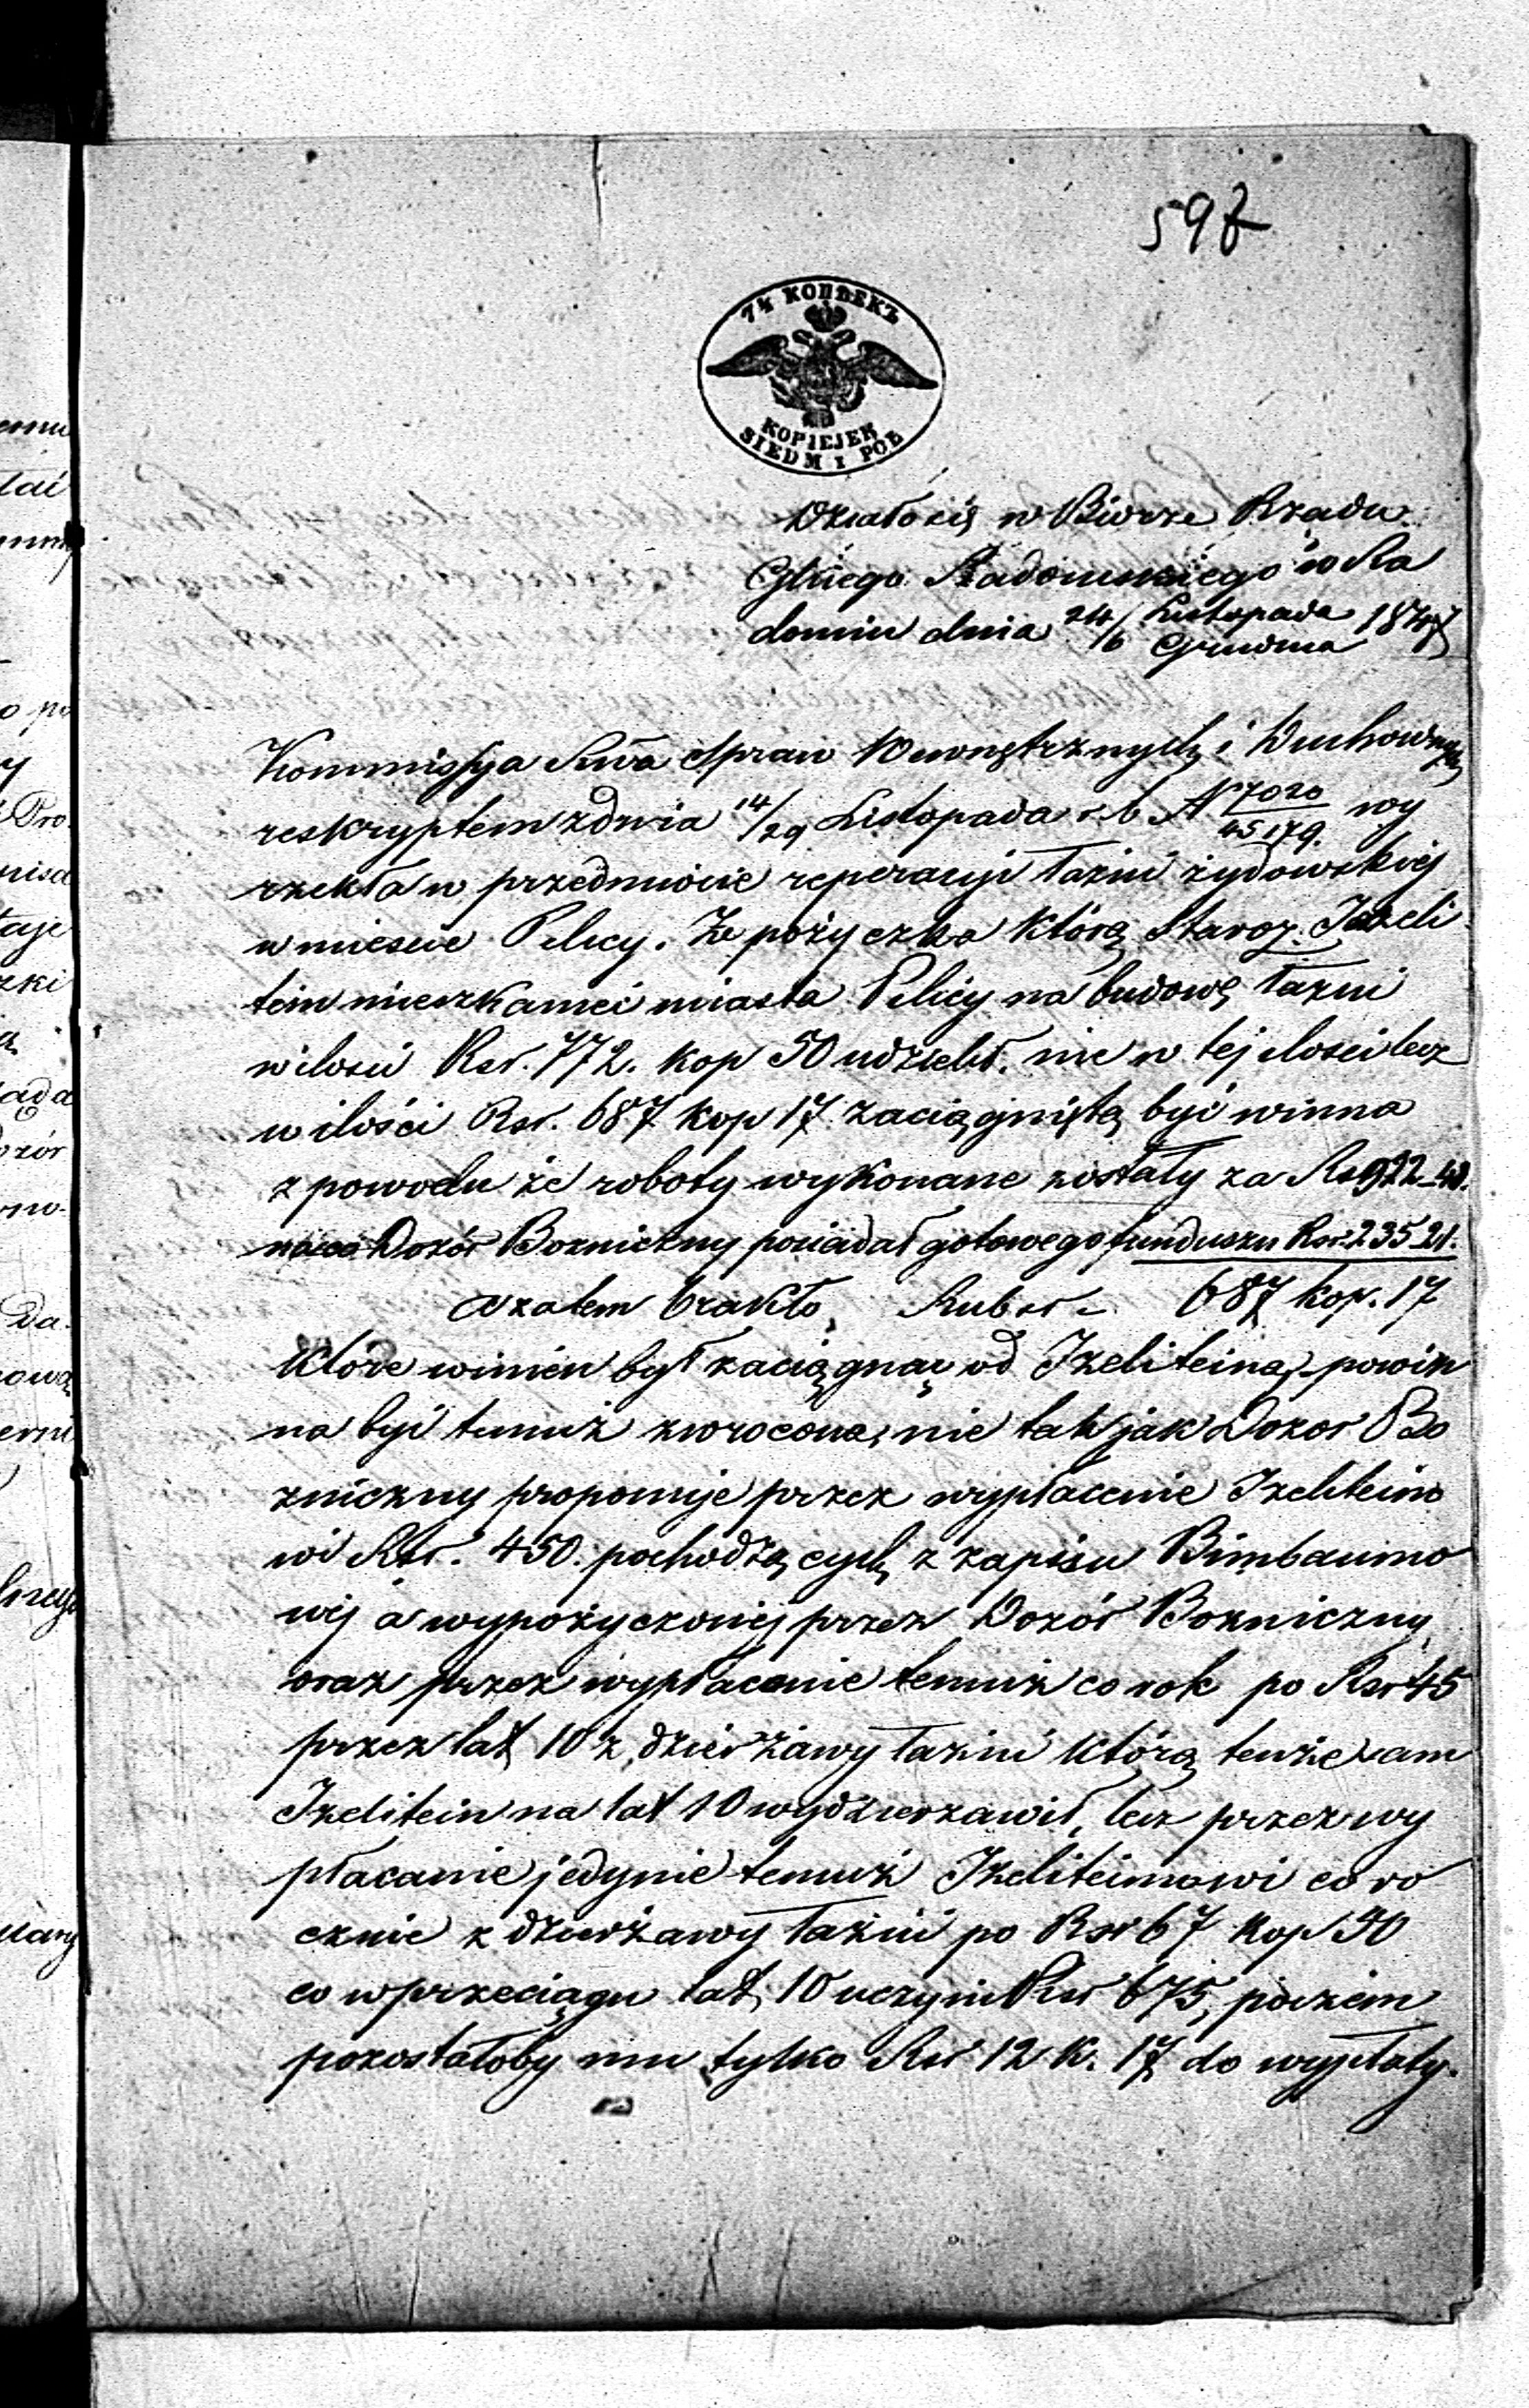 597
7½ КОПѢЕКЪ
KOPIEJEK
SIEDM I POŁ
Działo się w Biurze Rządu
Gbłnego Radomskiego w Ra
domiu dnia 24/6 Listopada Grudnia 1847
Kommissya Rwa Spraw Wewnętrznych i Duchownych
reskryptem z dnia 14/29 Listopada r. b. N 7020/45179 wy
rzekła w przedmiocie reperacyi łaźni żydowskiej
w miescie Pilicy. Ze pożyczka którą Staroz.
tein mieszkaniec miasta Pilicy na budowę łaźni
w ilosci Rsr. 772. kop 50 udzielił. nie w tej ilosci lecz
w ilości Rsr. 687 kop 17. zaciągniętą być winna
z powodu że roboty wykonane zostały za Rs 922_
na co Dozór Bozniczny posiadał gotowego funduszu Rsr. 235_21.
a zatem brakło Rubsr. 687 kop. 17
które winien był zaciągnąć od Izelsteina, powin
na być temuż zwrocona, nie tak jak Dozor Bo
zniczny proponuje przez wypłacenie Izelsteino
wi Rsr. 450. pochodzących z zapisu Birnbaumo
wej a wypożyczonej przez Dozór Bozniczny
oraz przez wypłacanie temuż co rok po Rsr 45
przez lat 10 z dzierżawy łaźni którą tenże sam
Izelstein na lat 10 wydzierzawił, lecz przez wy
płacanie jedynie temuż Izelsteinowi co ro
cznie z dzierżawy łaźni po Rsr 67 kop 50
co w przeciągu lat 10 uczyni Rsr 675, poczem
pozostałoby mu tylko Rsr 12 k. 17 do wypłaty.